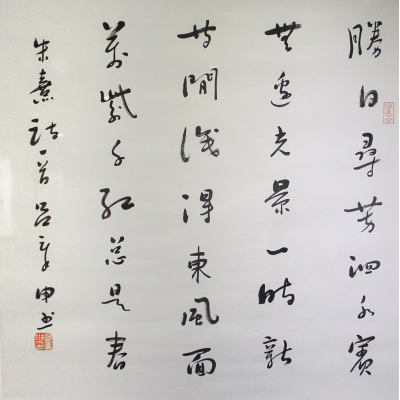 勝日尋芳泗水賓
無邊光景一時新
等閒識得東風面
萬紫千紅總是春
朱熹詩一首 呂章申書